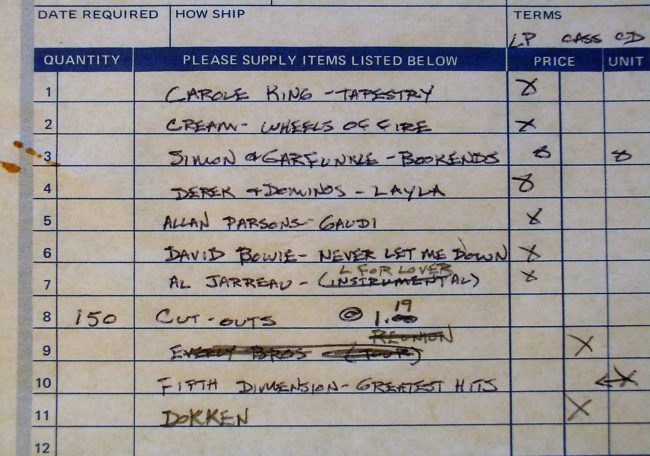 DATE REQUIRED HOW SHIP TERMS
LP CASS CD
QUANTITY PLEASE SUPPLY ITEMS LISTED BELOW PRICE UNIT
1 CAROLE KING - TAPESTRY X
2 CREAM - WHEELS OF FIRE X
3 SIMON & GARFUNKLE - BOOKENDS 8 8
4 DEREK & DOMINOS - LAYLA 8
5 ALLAN PARSONS - GAUDI X
6 DAVID BOWIE - NEVER LET ME DOWN X
L FOR LOVER
7 AL JARREAU - (INSTRUMENTAL) X
19
8 150 CUT-OUTS @ 1.00
REUNION
9 EVERLY BROS (TOUR) X
10 FIFTH DIMENSION - GREATEST HITS X
11 DOKKEN X
12